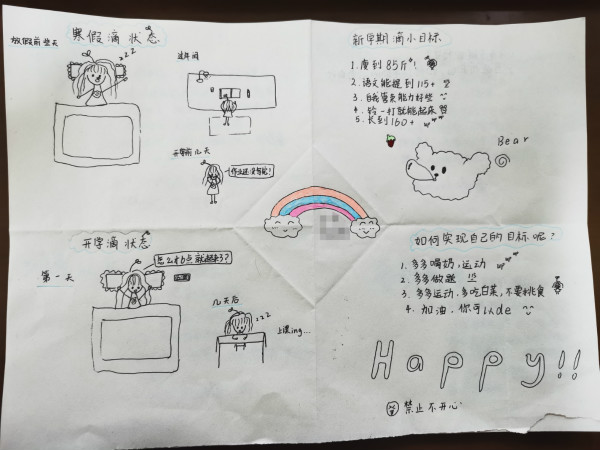 寒假滴状态
放假前些天
zzz
过年间
开学前几天
作业还没写呢?
新学期滴小目标
1. 瘦到85斤!
2. 语文能提到115+
3. 自我管束能力好些
4. 铃一打就能起床
5. 长到160+
Bear
开学滴状态
第一天
怎么才6点就起来了?
几天后
zzz
上课ing...
如何实现自己的目标呢?
1. 多多喝奶,运动
2. 多多做题
3. 多多运动,多吃白菜,不要挑食
4. 加油,你可以de
Happy!!
禁止不开心